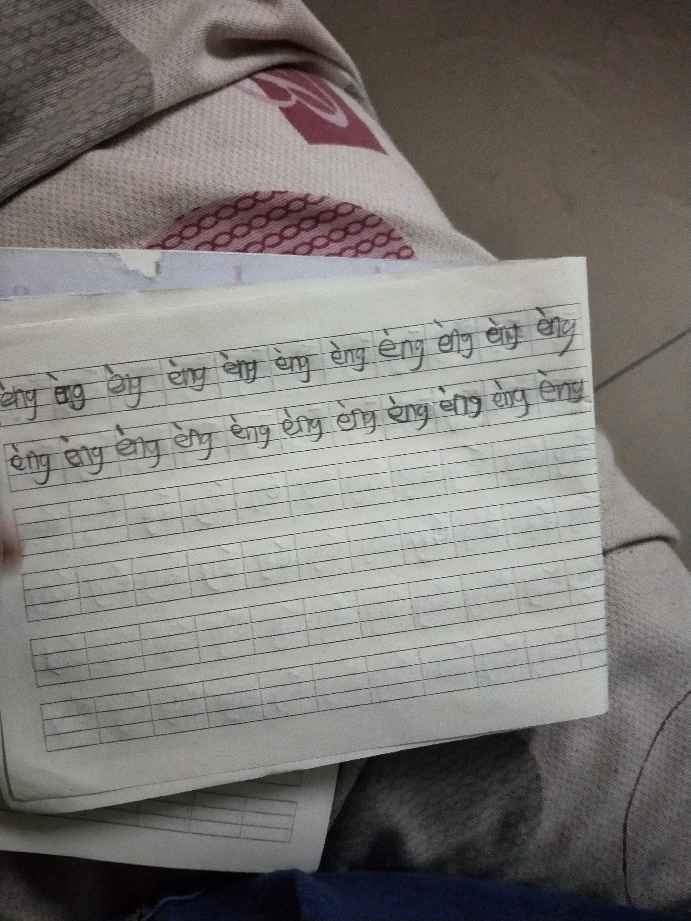 èng èng èng èng èng èng èng èng èng èng èng
èng èng èng èng èng èng èng èng èng èng èng